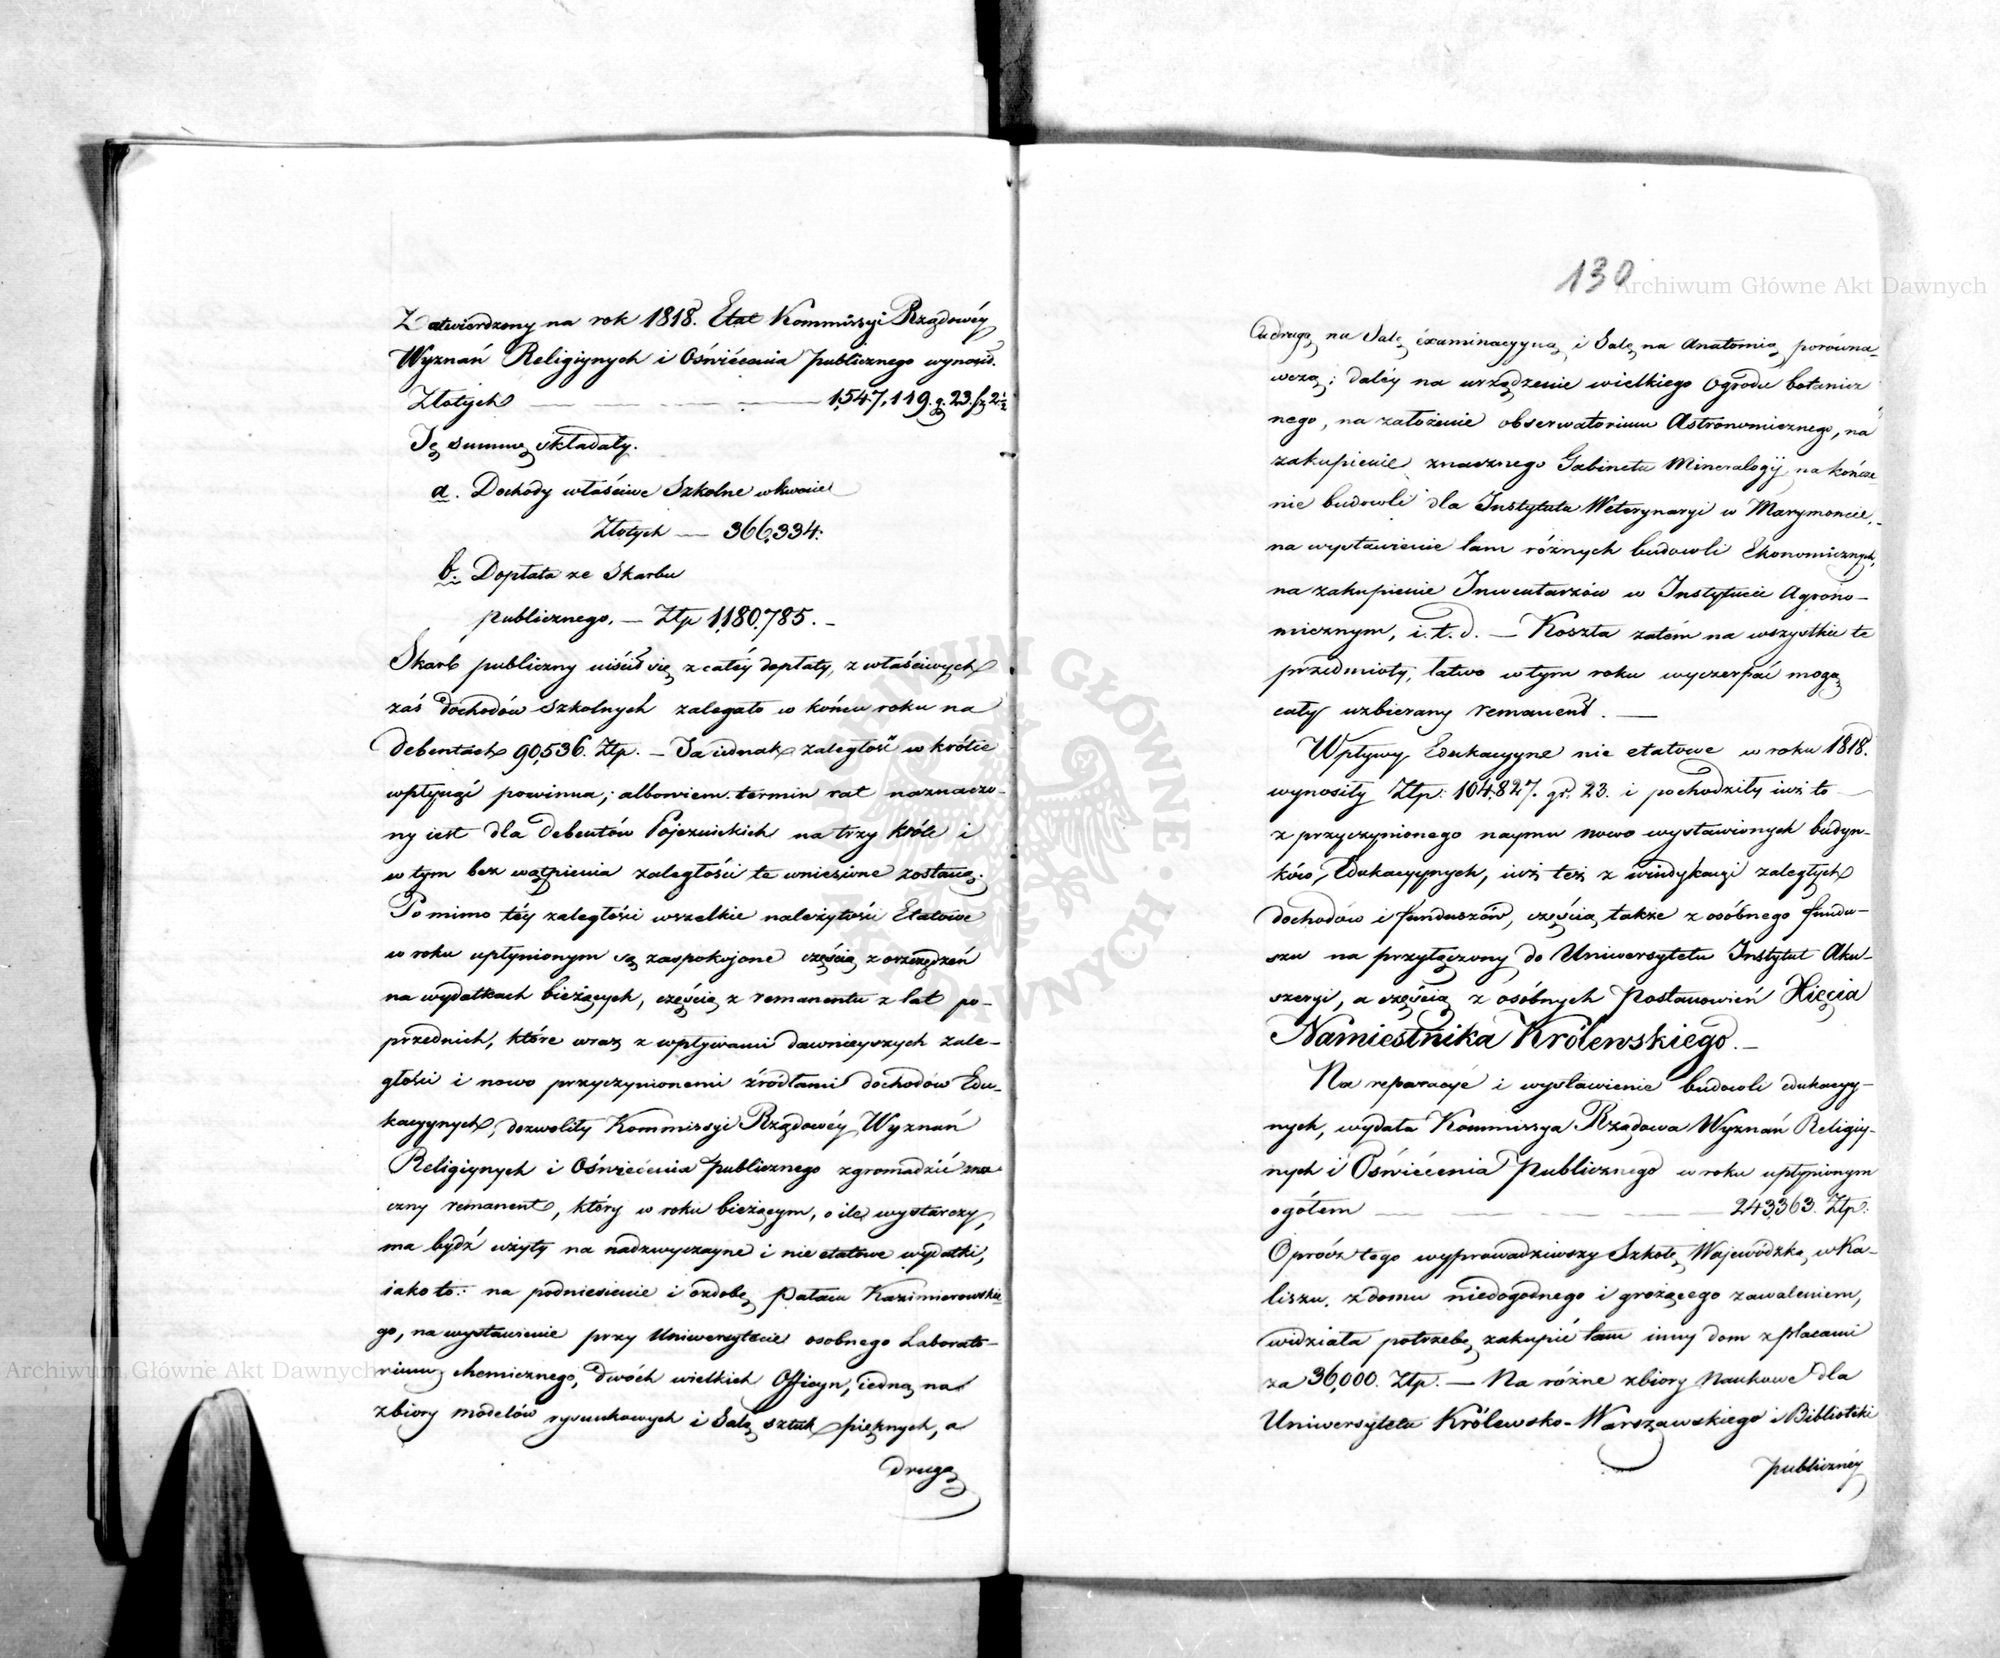 Zatwierdzony na rok 1818. Etat Kommissyi Rządowéy
Wyznań Religiynych i Oświécenia publicznego wynosił.
Złotych — — — — 1,547,119. g. 23. sz 2½
Tę summę składały.
a. Dochody właściwe Szkolne w kwocie
Złotych — 366,334:
b. Dopłata ze Skarbu
publicznego. — Złp 1,180,785. —
Skarb publiczny uiścił się z całéy dopłaty, z właściwych
zaś dochodów Szkolnych zalegało w końcu roku na
debentach 90,536. Złp. — Ta iednak zaległość w krótce
wpłynąć powinna; albowiem termin rat naznaczo-
ny iest dla debentów Pojezuickich na trzy króle i
w tym bez wątpienia zaległości te wniesione zostaną.
Pomimo téy zaległości wszelkie należytości Etatowe
w roku upłynionym są zaspokojone częścią z oszczędzeń
na wydatkach bieżących, częścią z remanentu z lat po-
przednich, które wraz z wpływami dawnieyszych zale-
głości i nowo przyczynionemi źródłami dochodów Edu-
kacyynych, dozwoliły Kommissyi Rządowéy Wyznań
Religiynych i Oświécenia publicznego zgromadzić zna-
czny remanent, który w roku bieżącym, o ile wystarczy,
ma bydź użyty na nadzwyczayne i nie etatowe wydatki,
iako to: na podniesienie i ozdobę Pałacu Kazimierowskie-
go, na wystawienie przy Uniwersytecie osobnego Laborato-
rium chemicznego, dwóch wielkich Officyn, iedną na
zbiory modelów rysunkowych i Salę sztuk pięknych, a
drugą
130
a drugą na Salę examinacyyną i Salę na Anatomią porówna-
wczą; daléy na urządzenie wielkiego Ogrodu botanicz
nego, na założenie obserwatorium Astronomicznego, na
zakupienie znacznego Gabinetu Mineralogij, na kończe-
nie budowli dla Instytutu Weterynaryi w Marymoncie,
na wystawienie tam różnych budowli Ekonomicznych,
na zakupienie Inwentarzów w Instytucie Agrono-
micznym, i. t. d. — Koszta zatém na wszystkie te
przedmioty, łatwo w tym roku wyczerpać mogą
cały uzbierany remanent. —
Wpływy Edukacyyne nie etatowe w roku 1818.
wynosiły Złp: 104,827. gr. 23. i pochodziły iuż to
z przyczynionego naymu nowo wystawionych budyn-
ków, Edukacyynych, iuż też z windykacyi zaległych
dochodów i funduszów, częścią także z osóbnego fundu-
szu na przyłączony do Uniwersytetu Instytut Aku-
szeryi, a częścią z osóbnych Postanowień Xięcia
Namiestnika Królewskiego. —
Na reparacyé i wystawienie budowli edukacyy-
nych, wydała Kommissya Rządowa Wyznań Religiy-
nych i Oświécenia Publicznego w roku upłynionym
ogółem — — — — 243,363. Złp:
Oprócz tego wyprowadziwszy Szkołę Wojewódzką w Ka-
liszu, z domu niedogodnego i grożącego zawaleniem,
widziała potrzebę zakupić tam inny dom z placami
za 36,000. Złp. — Na różne zbiory Naukowe dla
Uniwersytetu Królewsko-Warszawskiego i Biblioteki
publicznéy
Archiwum Główne Akt Dawnych
Archiwum Główne Akt Dawnych
ARCHIWUM GŁÓWNE AKT DAWNYCH